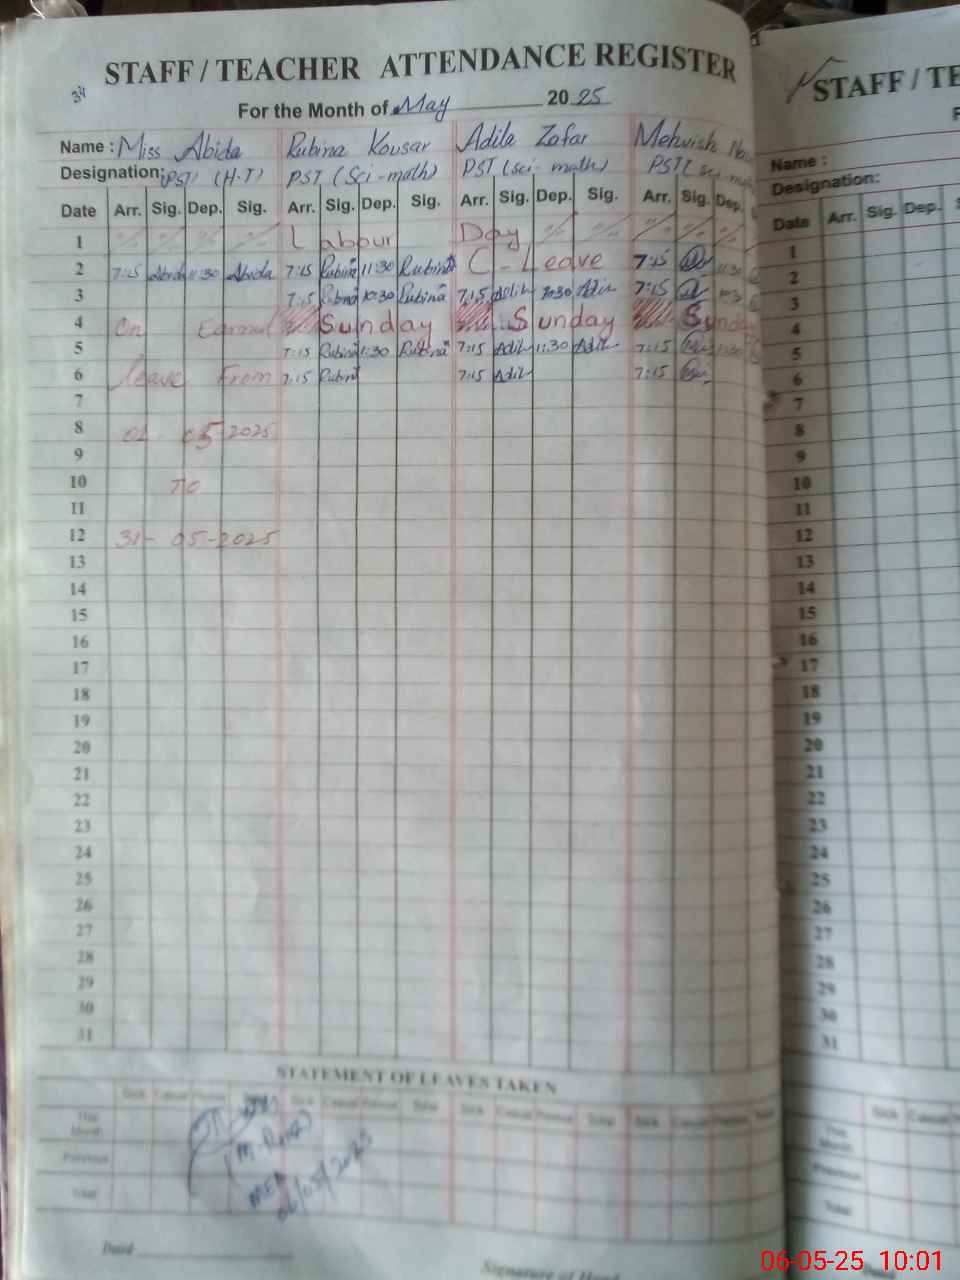 STAFF / TEACHER ATTENDANCE REGISTER
34
For the Month of May 2025
Name : Miss Abida Rubina Kousar Adila Zafar Mehwish
Designation: PST (H-T) PST (Sci-math) PST (sci-math) PST (sci-math
Date Arr. Sig. Dep. Sig. Arr. Sig. Dep. Sig. Arr. Sig. Dep. Sig. Arr. Sig. Dep.
1 Labour Day
2 7:15 Abida 11:30 Abida 7:15 Rubina 11:30 Rubina C-Leave 7:15 11:30
3 7:15 Rubina 10:30 Rubina 7:15 Adila 10:30 Adila 7:15
4 On Earned Sunday Sunday Sunday
5 7:15 Rubina 1:30 Rubina 7:15 Adila 1:30 Adila 7:15
6 leave From 7:15 Rubina 7:15 Adila 7:15
7
8 01 05 2025
9
10 TO
11
12 31-05-2025
13
14
15
16
17
18
19
20
21
22
23
24
25
26
27
28
29
30
31
STATEMENT OF LEAVES TAKEN
Sick Casual Total Sick Casual Total Sick Casual Total Sick Casual Total
This Month
Previous
Total
MEA
06/05/2025
Dated
Signature of Head
STAFF / TE
F
Name :
Designation:
Date Arr. Sig. Dep. S
1
2
3
4
5
6
7
8
9
10
11
12
13
14
15
16
17
18
19
20
21
22
23
24
25
26
27
28
29
30
31
Sick Casual
This Month
Previous
Total
06-05-25 10:01